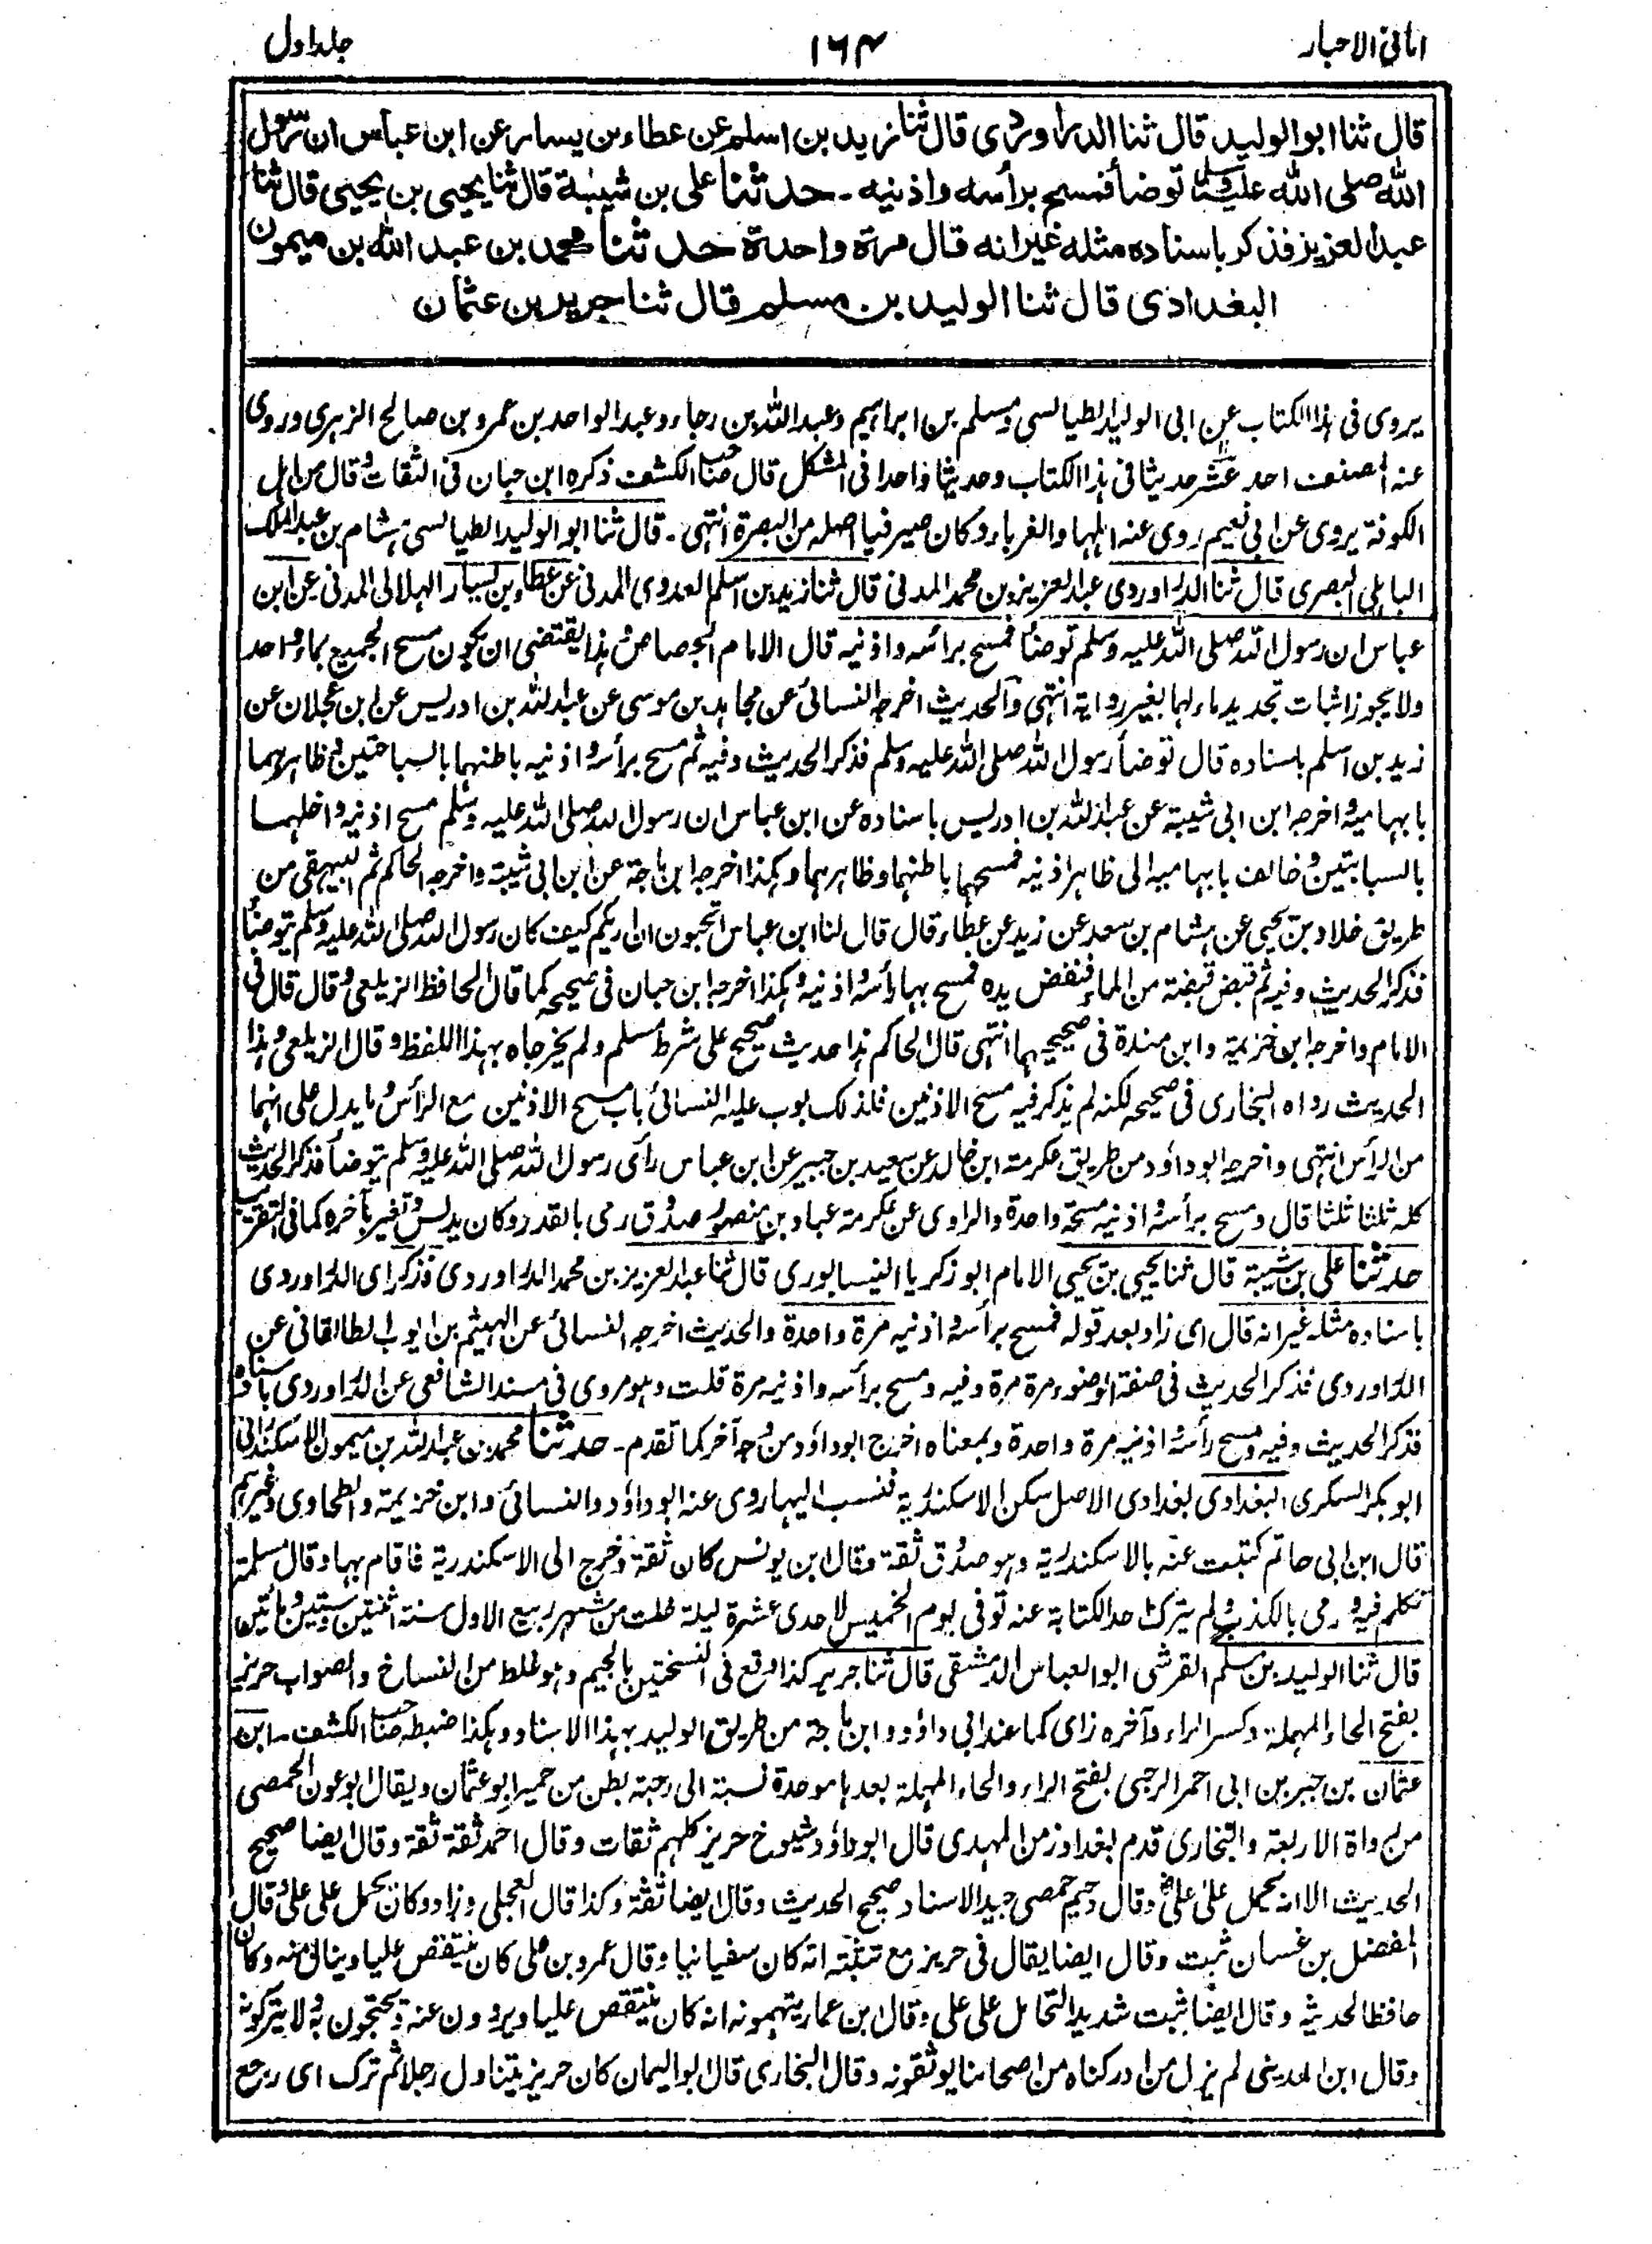 امانی الاحبار
۱۶۴
جلد اول
قال ثنا ابو الوليد قال ثنا الدراوردی قال ثنا زيد بن اسلم عن عطاء بن يسار عن ابن عباس ان رسول
الله صلى الله عليه وسلم توضأ فمسح برأسه واذنيه ۔ حدثنا علی بن شيبة قال ثنا يحيى بن يحيى قال ثنا
عبد العزيز فذكر باسناده مثله غير انه قال مرة واحدة حدثنا محمد بن عبد الله بن ميمون
البغدادی قال ثنا الوليد بن مسلم قال ثنا جرير بن عثمان
يروى فى هذا الكتاب عن ابى الوليد الطيالسى ومسلم بن ابراهيم وعبد الله بن رجاء وعبد الواحد بن عمرو بن صالح الزهرى وروى
عنه المصنف احد عشر حديثا فى هذا الكتاب وحديثا واحدا فى المشكل قال صاحب الكشف ذكره ابن حبان فى الثقات وقال من اهل
الكوفة يروى عن ابى نعيم روى عنه اهلها والغرباء وكان صيرفيا اصله من البصرة انتهى ۔ قال ثنا ابو الوليد الطيالسى هشام بن عبد الملك
الباهلى البصرى قال ثنا الدراوردى عبد العزيز بن محمد المدنى قال ثنا زيد بن اسلم العدوى المدنى عن عطاء بن يسار الهلالى المدنى عن ابن
عباس ان رسول الله صلى الله عليه وسلم توضأ فمسح برأسه واذنيه قال الامام الجصاص هذا يقتضى ان يكون مسح الجميع بماء واحد
ولا يجوز اثبات تجديد ماء لهما بغير رواية انتهى والحديث اخرجه النسائى عن مجاهد بن موسى عن عبد الله بن ادريس عن ابن عجلان عن
زيد بن اسلم باسناده قال توضأ رسول الله صلى الله عليه وسلم فذكر الحديث وفيه ثم مسح برأسه واذنيه باطنهما بالسباحتين وظاهرهما
بابهاميه واخرجه ابن ابى شيبة عن عبد الله بن ادريس باسناده عن ابن عباس ان رسول الله صلى الله عليه وسلم مسح اذنيه داخلهما
بالسبابتين وخالف بابهاميه الى ظاهر اذنيه فمسحهما باطنهما وظاهرهما وهكذا اخرجه ابن ماجة عن ابن ابى شيبة واخرجه الحاكم ثم البيهقى من
طريق خلاد بن يحيى عن هشام بن سعد عن زيد عن عطاء قال قال لنا ابن عباس اتحبون ان اريكم كيف كان رسول الله صلى الله عليه وسلم يتوضأ
فذكر الحديث وفيه ثم قبض قبضة من الماء فنفض يده فمسح بها رأسه واذنيه وهكذا اخرجه ابن حبان فى صحيحه كما قال الحافظ الزيلعى وقال قال فى
الامام واخرجه ابن خزيمة وابن مندة فى صحيحيهما انتهى قال الحاكم هذا حديث صحيح على شرط مسلم ولم يخرجاه بهذا اللفظ وقال الزيلعى وهذا
الحديث رواه البخارى فى صحيحه لكنه لم يذكر فيه مسح الاذنين فلذلك بوب عليه النسائى باب مسح الاذنين مع الرأس وما يدل على انهما
من الرأس انتهى واخرجه ابو داود من طريق عكرمة ابن خالد عن سعيد بن جبير عن ابن عباس رأى رسول الله صلى الله عليه وسلم يتوضأ فذكر الحديث
كله ثلثا ثلثا قال ومسح برأسه واذنيه مسحة واحدة والراوى عن عكرمة عباد بن منصور صدوق رمى بالقدر وكان يدلس وتغير بآخره كما فى التقريب
حدثنا على بن شيبة قال ثنا يحيى بن يحيى الامام ابو زكريا النيسابورى قال ثنا عبد العزيز بن محمد الدراوردى فذكر اى الدراوردى
باسناده مثله غير انه قال اى زاد بعد قوله فمسح برأسه واذنيه مرة واحدة والحديث اخرجه النسائى عن الهيثم بن ايوب الطالقانى عن
الدراوردى فذكر الحديث فى صفة الوضوء مرة مرة وفيه ومسح برأسه واذنيه مرة قلت وهو مروى فى مسند الشافعى عن الدراوردى باسناده
فذكر الحديث وفيه ومسح رأسه واذنيه مرة واحدة وبمعناه اخرج ابو داؤد من وجه آخر كما تقدم ۔ حدثنا محمد بن عبد الله بن ميمون الاسكندرانى
ابو بكر السكرى البغدادى بغدادى الاصل سكن الاسكندرية فنسب اليها روى عنه ابو داؤد والنسائى وابن خزيمة والطحاوى وغيرهم
قال ابن ابى حاتم كتبت عنه بالاسكندرية وهو صدوق ثقة وقال ابن يونس كان ثقة وخرج الى الاسكندرية فاقام بها وقال مسلمة
تكلم فيه ورمى بالكذب ولم يترك احد الكتابة عنه توفى يوم الخميس لاحدى عشرة ليلة خلت من شهر ربيع الاول سنة اثنتين وستين ومأتين
قال ثنا الوليد بن مسلم القرشى ابو العباس الدمشقى قال ثنا جرير كذا وقع فى النسختين بالجيم وهو غلط من النساخ والصواب حريز
بفتح الحاء المهملة وكسر الراء وآخره زاى كما عند ابى داؤد وابن ماجة من طريق الوليد بهذا الاسناد وهكذا ضبطه صاحب الكشف ۔ ابن
عثمان بن جبر بن ابى احمر الرحبى بفتح الراء والحاء المهملة بعدها موحدة نسبة الى رحبة بطن من حمير ابو عثمان ويقال ابو عون الحمصى
من رواة الاربعة والبخارى قدم بغداد زمن المهدى قال ابو داؤد شيوخ حريز كلهم ثقات وقال احمد ثقة ثقة وقال ايضا صحيح
الحديث الا انه يحمل على على وقال دحيم حمصى جيد الاسناد صحيح الحديث وقال ايضا ثقة وكذا قال العجلى وزاد وكان يحمل على على وقال
المفضل بن غسان ثبت وقال ايضا يقال فى حريز مع تثبته انه كان سفيانيا وقال عمرو بن على كان ينتقص عليا وينال منه وكان
حافظا لحديثه وقال ايضا ثبت شديد التحامل على على وقال ابن عمار يتهمونه انه كان ينتقص عليا ويروون عنه ويحتجون به ولا يتركونه
وقال ابن المدينى لم يزل من ادركناه من اصحابنا يوثقونه وقال البخارى قال ابو اليمان كان حريز يتناول رجلا ثم ترك اى رجع